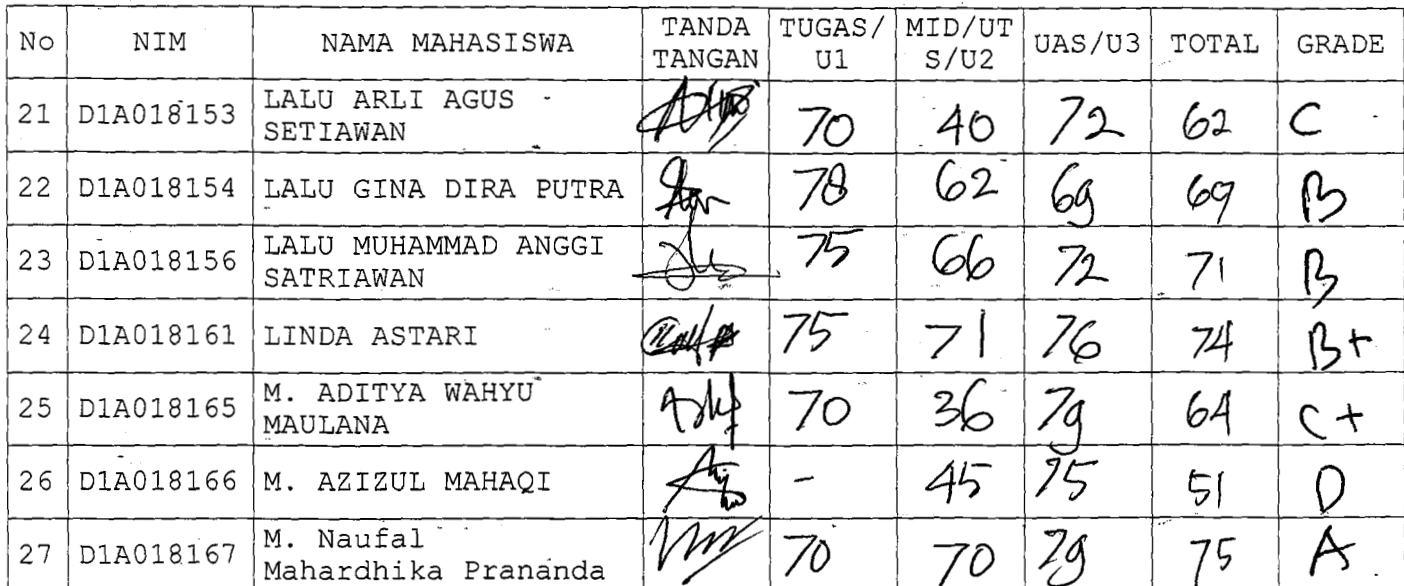 No NIM NAMA MAHASISWA TANDA TANGAN TUGAS/U1 MID/UTS/U2 UAS/U3 TOTAL GRADE
21 D1A018153 LALU ARLI AGUS SETIAWAN 70 40 72 62 C
22 D1A018154 LALU GINA DIRA PUTRA 78 62 69 69 B
23 D1A018156 LALU MUHAMMAD ANGGI SATRIAWAN 75 66 72 71 B
24 D1A018161 LINDA ASTARI 75 71 76 74 B+
25 D1A018165 M. ADITYA WAHYU MAULANA 70 36 79 64 C+
26 D1A018166 M. AZIZUL MAHAQI - 45 75 51 D
27 D1A018167 M. Naufal Mahardhika Prananda 70 70 79 75 A